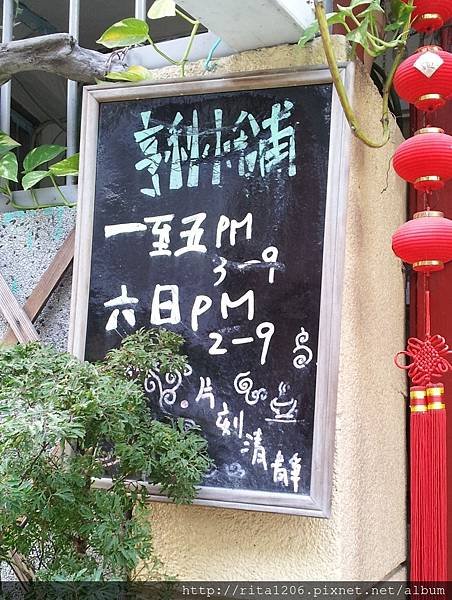 舖
一至五 PM
3-9
六日 PM
2-9
片刻清靜
http://rita1206.pixnet.net/album